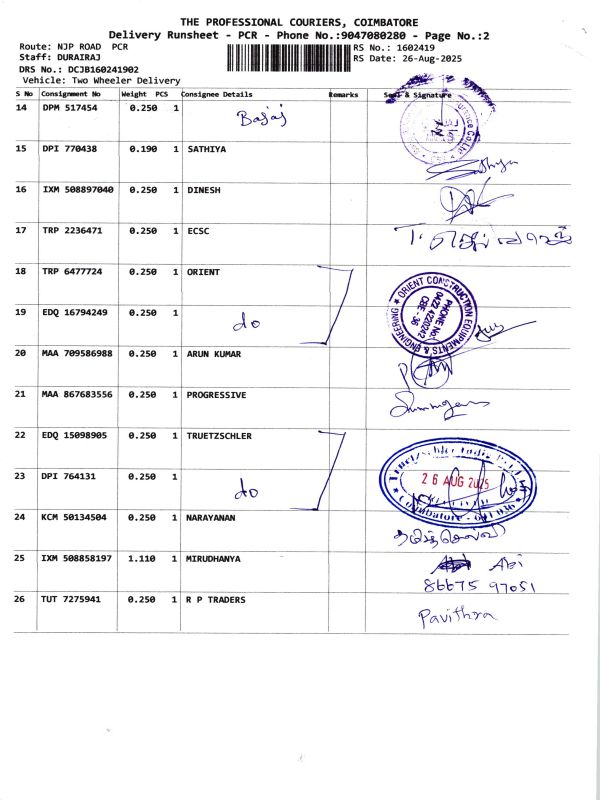 THE PROFESSIONAL COURIERS, COIMBATORE
Delivery Runsheet - PCR - Phone No.:9047080280 - Page No.:2
Route: NJP ROAD PCR
RS No.: 1602419
Staff: DURAIRAJ
RS Date: 26-Aug-2025
DRS No.: DCJB160241902
Vehicle: Two Wheeler Delivery
S No Consignment No Weight PCS Consignee Details Remarks Seal & Signature
14 DPM 517454 0.250 1 Bajaj
15 DPI 770438 0.190 1 SATHIYA
16 IXM 508897040 0.250 1 DINESH
17 TRP 2236471 0.250 1 ECSC
18 TRP 6477724 0.250 1 ORIENT
19 EDQ 16794249 0.250 1 do
ORIENT CONSTRUCTION EQUIPMENTS & ENGINEERING
PHONE No.
0422 4220242
CBE - 36
20 MAA 709586988 0.250 1 ARUN KUMAR
21 MAA 867683556 0.250 1 PROGRESSIVE
22 EDQ 15098905 0.250 1 TRUETZSCHLER
23 DPI 764131 0.250 1 do
26 AUG 2025
Coimbatore
24 KCM 50134504 0.250 1 NARAYANAN
25 IXM 508858197 1.110 1 MIRUDHANYA Abi
86675 97051
26 TUT 7275941 0.250 1 R P TRADERS Pavithra